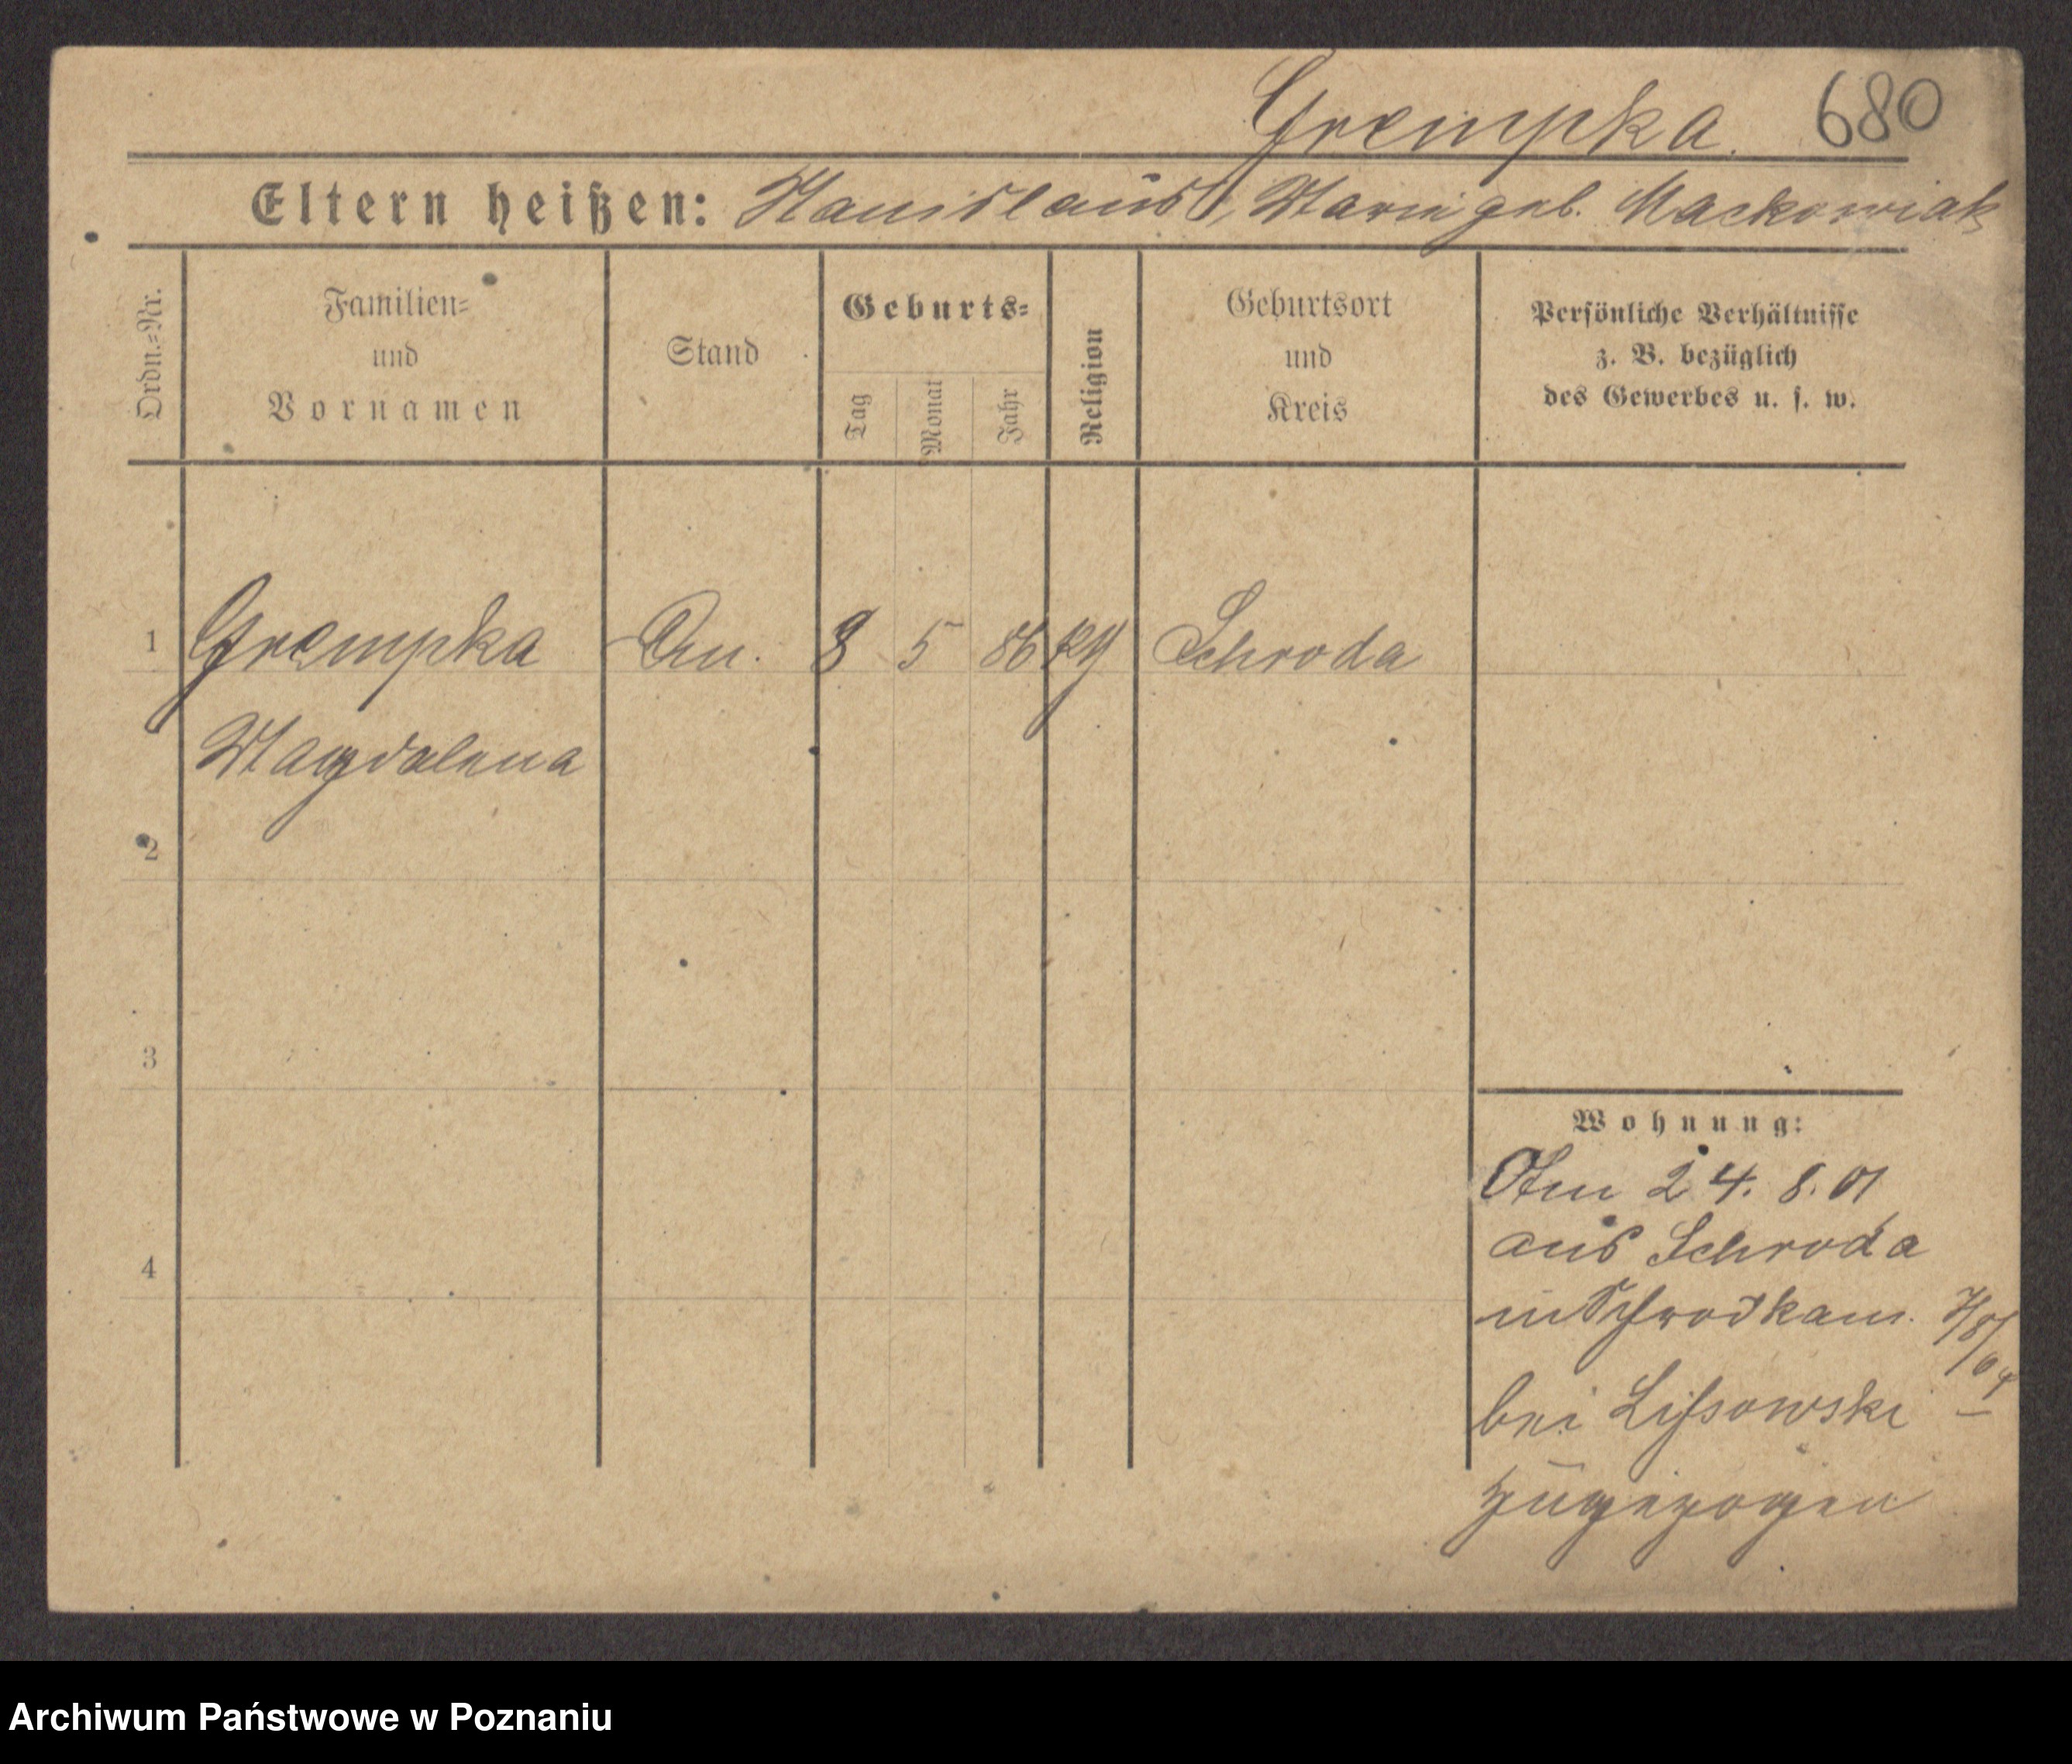 Grempka. 680
Eltern heißen: Stanislaus, Marie geb. Mackowiak
Ordn.-Nr.
Familien- und Vornamen
Stand
Geburts-
Tag
Monat
Jahr
Religion
Geburtsort und Kreis
Persönliche Verhältnisse
z. B. bezüglich
des Gewerbes u. s. w.
1 Grempka 8 5 86 Schroda
Magdalena
2
3
4
Wohnung:
Am 24. 8. 01
aus Schroda
bei Lissowski
zugezogen
Archiwum Państwowe w Poznaniu